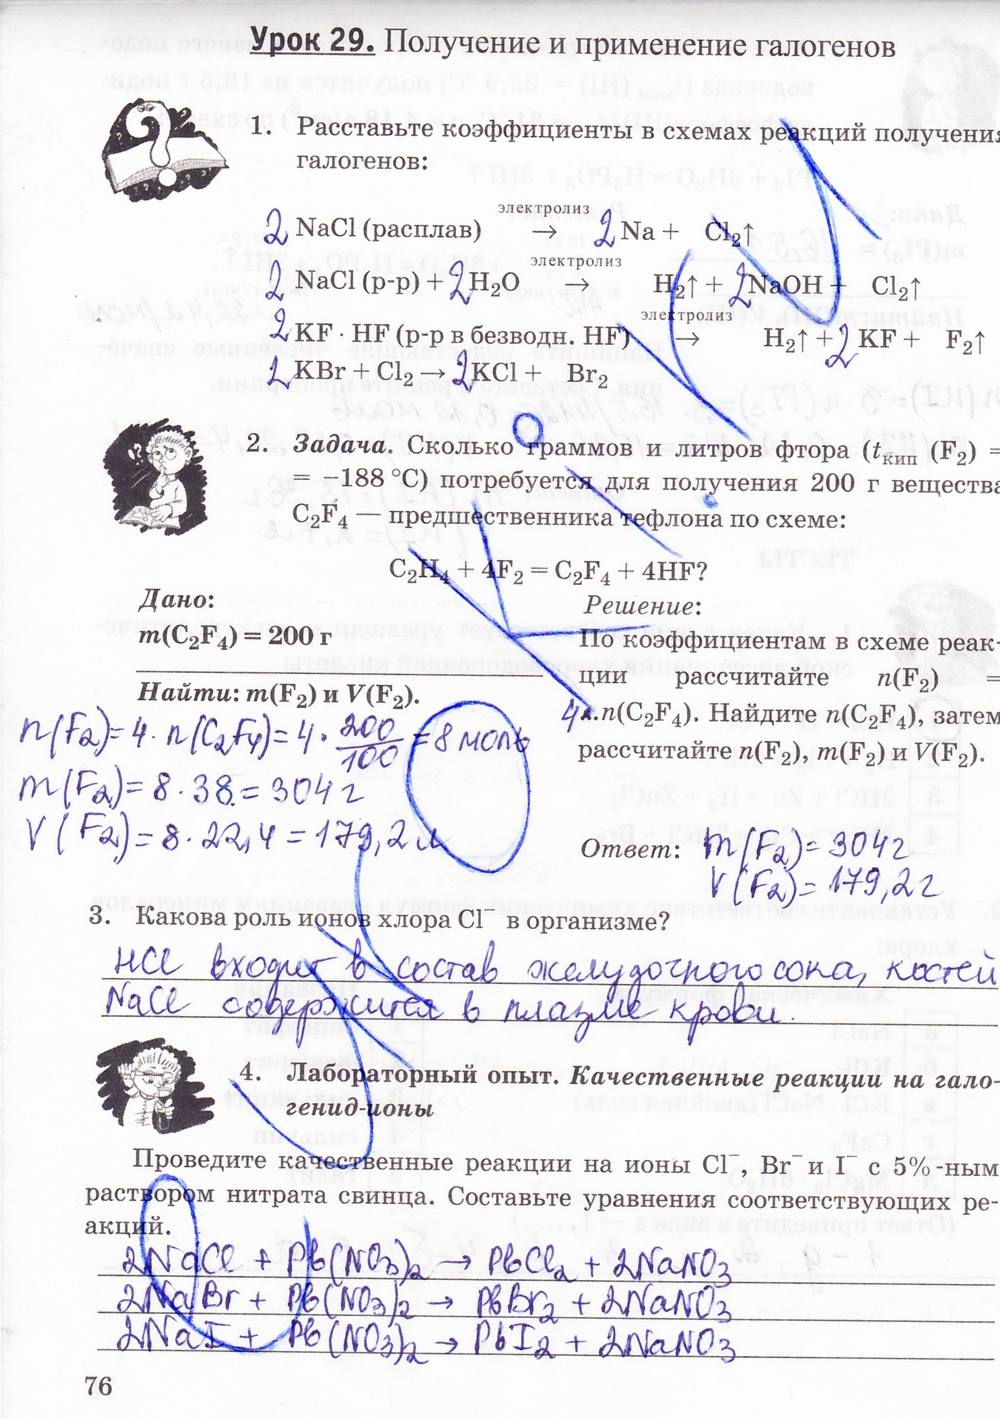 Урок 29. Получение и применение галогенов
1. Расставьте коэффициенты в схемах реакций получения
галогенов:
электролиз
2 NaCl (расплав) → 2 Na + Cl₂↑
электролиз
2 NaCl (р-р) + 2 H₂O → H₂↑ + 2 NaOH + Cl₂↑
электролиз
2 KF · HF (р-р в безводн. HF) → H₂↑ + 2 KF + F₂↑
2 KBr + Cl₂ → 2 KCl + Br₂
2. Задача. Сколько граммов и литров фтора (tкип (F₂) =
= −188 °C) потребуется для получения 200 г вещества
C₂F₄ — предшественника тефлона по схеме:
C₂H₄ + 4F₂ = C₂F₄ + 4HF?
Дано:
m(C₂F₄) = 200 г
Найти: m(F₂) и V(F₂).
Решение:
По коэффициентам в схеме реак-
ции рассчитайте n(F₂) =
4 . n(C₂F₄). Найдите n(C₂F₄), затем
рассчитайте n(F₂), m(F₂) и V(F₂).
n(F₂)=4· n(C₂F₄)=4· 200/100 = 8 моль
m(F₂)=8·38=304 г
V(F₂)=8·22,4=179,2 л
Ответ: m(F₂)=304г
V(F₂)=179,2г
3. Какова роль ионов хлора Cl⁻ в организме?
HCl входит в состав желудочного сока, костей
NaCl содержится в плазме крови.
4. Лабораторный опыт. Качественные реакции на гало-
генид-ионы
Проведите качественные реакции на ионы Cl⁻, Br⁻ и I⁻ с 5%-ным
раствором нитрата свинца. Составьте уравнения соответствующих ре-
акций.
2NaCl + Pb(NO₃)₂ → PbCl₂ + 2NaNO₃
2NaBr + Pb(NO₃)₂ → PbBr₂ + 2NaNO₃
2NaI + Pb(NO₃)₂ → PbI₂ + 2NaNO₃
76